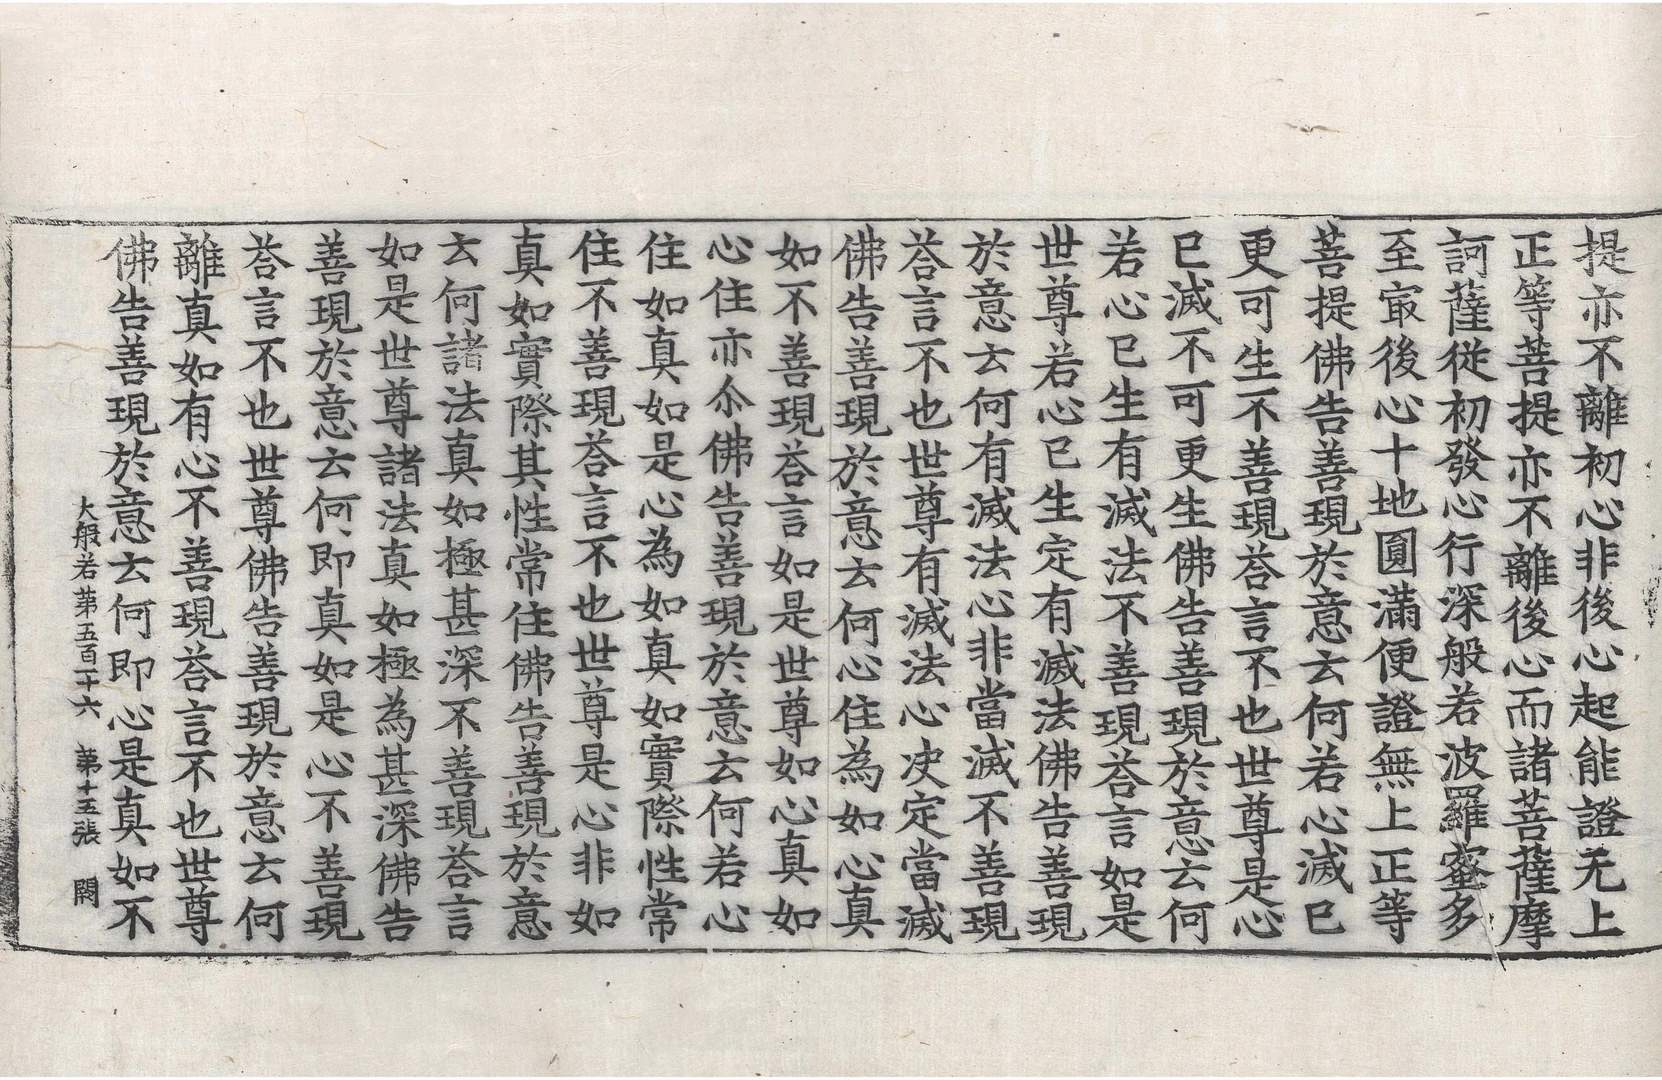 提亦不離初心非後心起能證无上
正等菩提亦不離後心而諸菩薩摩
訶薩從初發心行深般若波羅蜜多
至㝡後心十地圓滿便證無上正等
菩提佛告善現於意云何若心滅已
更可生不善現荅言不也世尊是心
已滅不可更生佛告善現於意云何
若心已生有滅法不善現荅言如是
世尊若心已生定有滅法佛告善現
於意云何有滅法心非當滅不善現
荅言不也世尊有滅法心决定當滅
佛告善現於意云何心住為如心真
如不善現荅言如是世尊如心真如
心住亦尒佛告善現於意云何若心
住如真如是心為如真如實際性常
住不善現荅言不也世尊是心非如
真如實際其性常住佛告善現於意
云何諸法真如極甚深不善現荅言
如是世尊諸法真如極為甚深佛告
善現於意云何即真如是心不善現
荅言不也世尊佛告善現於意云何
離真如有心不善現荅言不也世尊
佛告善現於意云何即心是真如不
大般若第五百二十六 第十五張 闕